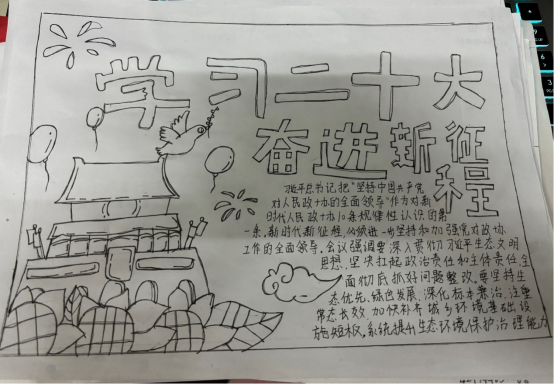 学习二十大
奋进新征程
习近平总书记把"坚持中国共产党
对人民政协的全面领导"作为对新
时代人民政协工作规律性认识的第
一条,新时代新征程,必须进一步坚持和加强党对政协
工作的全面领导。会议强调要深入贯彻习近平生态文明
思想,坚决扛起政治责任和主体责任,全
面彻底抓好问题整改。要坚持生
态优先、绿色发展,深化标本兼治,注重
常态长效,加快补齐城乡环境基础设
施短板,系统提升生态环境保护治理能力